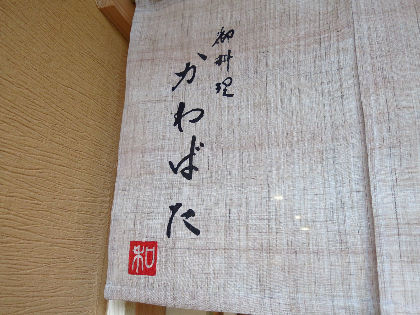 御料理
かわばた
和